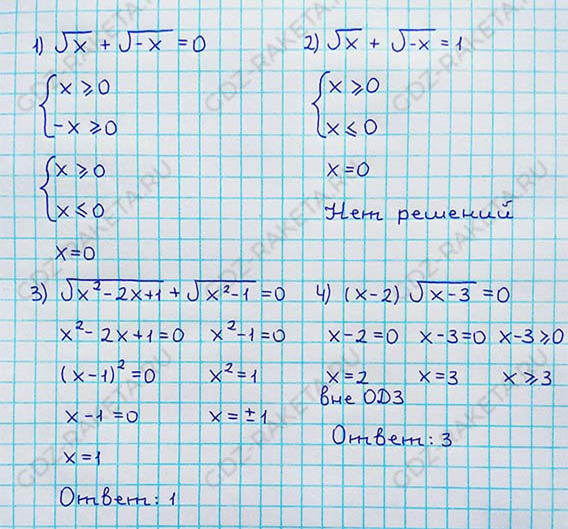 1) √x + √-x = 0
{ x ⩾ 0
-x ⩾ 0
{ x ⩾ 0
x ⩽ 0
x = 0
2) √x + √-x = 1
{ x ⩾ 0
x ⩽ 0
x = 0
Нет решений
3) √x²-2x+1 + √x²-1 = 0
x²-2x+1=0 x²-1=0
(x-1)²=0 x²=1
x-1=0 x=±1
x=1
Ответ: 1
4) (x-2)√x-3 = 0
x-2=0 x-3=0 x-3⩾0
x=2 x=3 x⩾3
вне ОДЗ
Ответ: 3
GDZ-RAKETA.RU